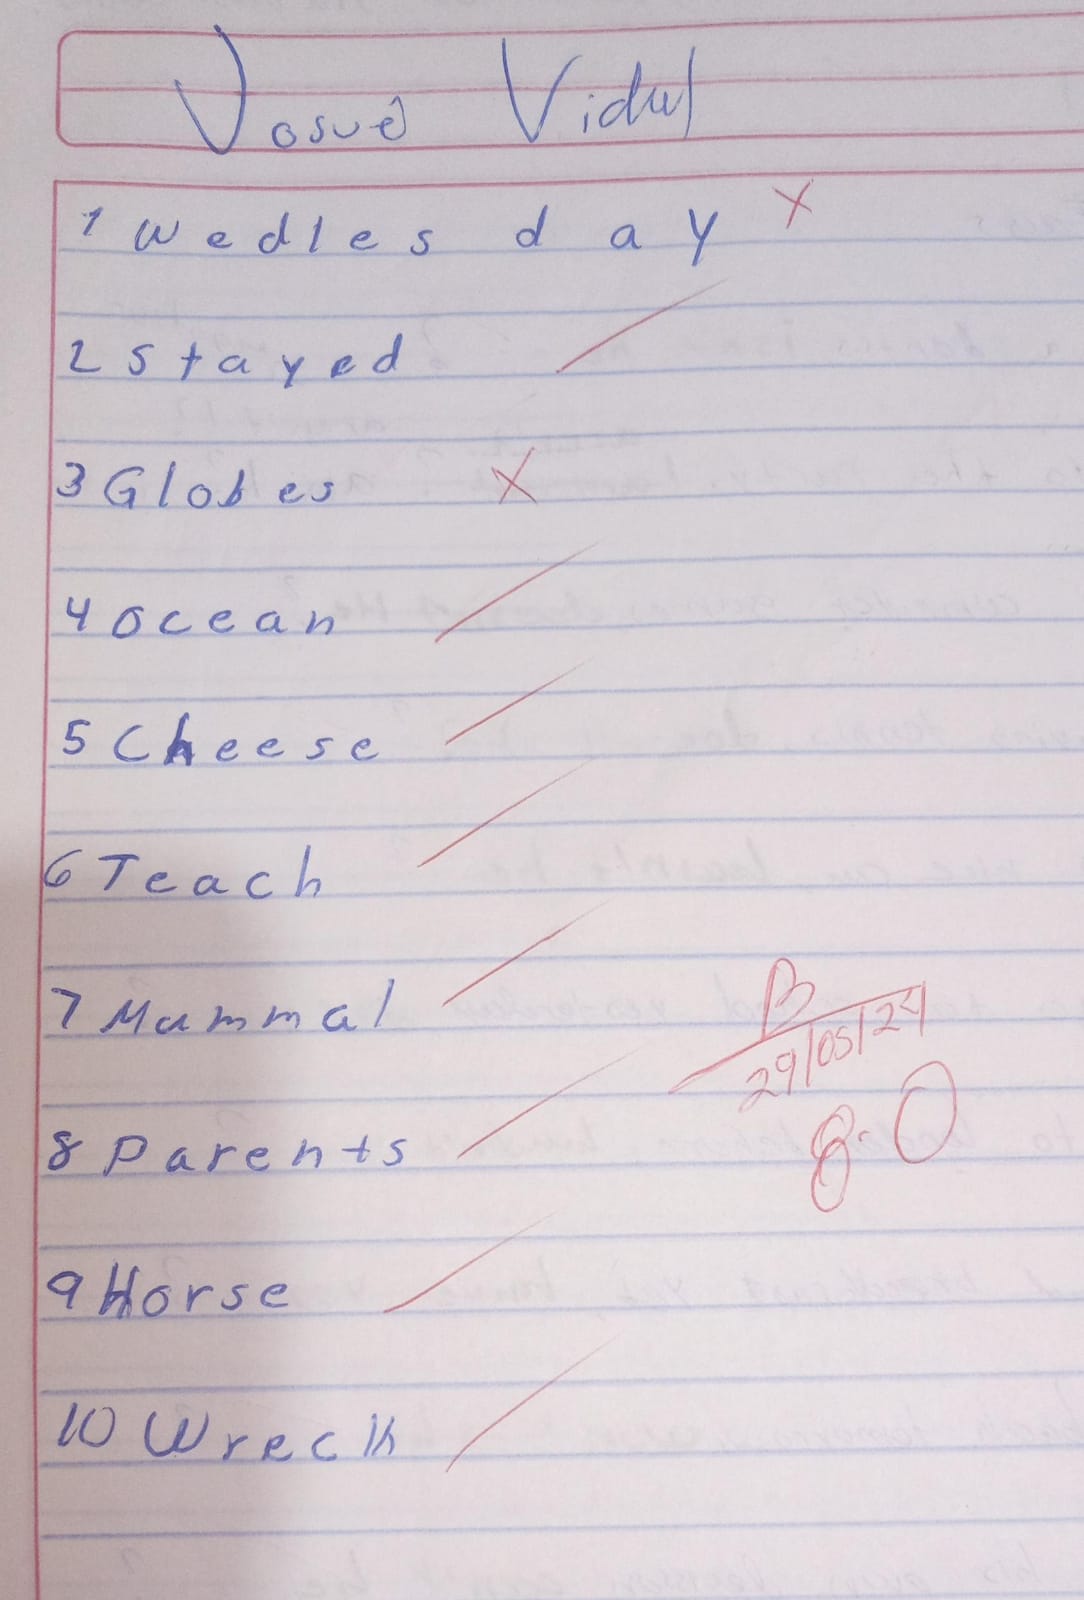 Josué Vidal
1 Wedles day X
2 Stayed
3 Globes X
4 Ocean
5 Cheese
6 Teach
7 Mammal
B
29/05/24
8.0
8 Parents
9 Horse
10 Wreck